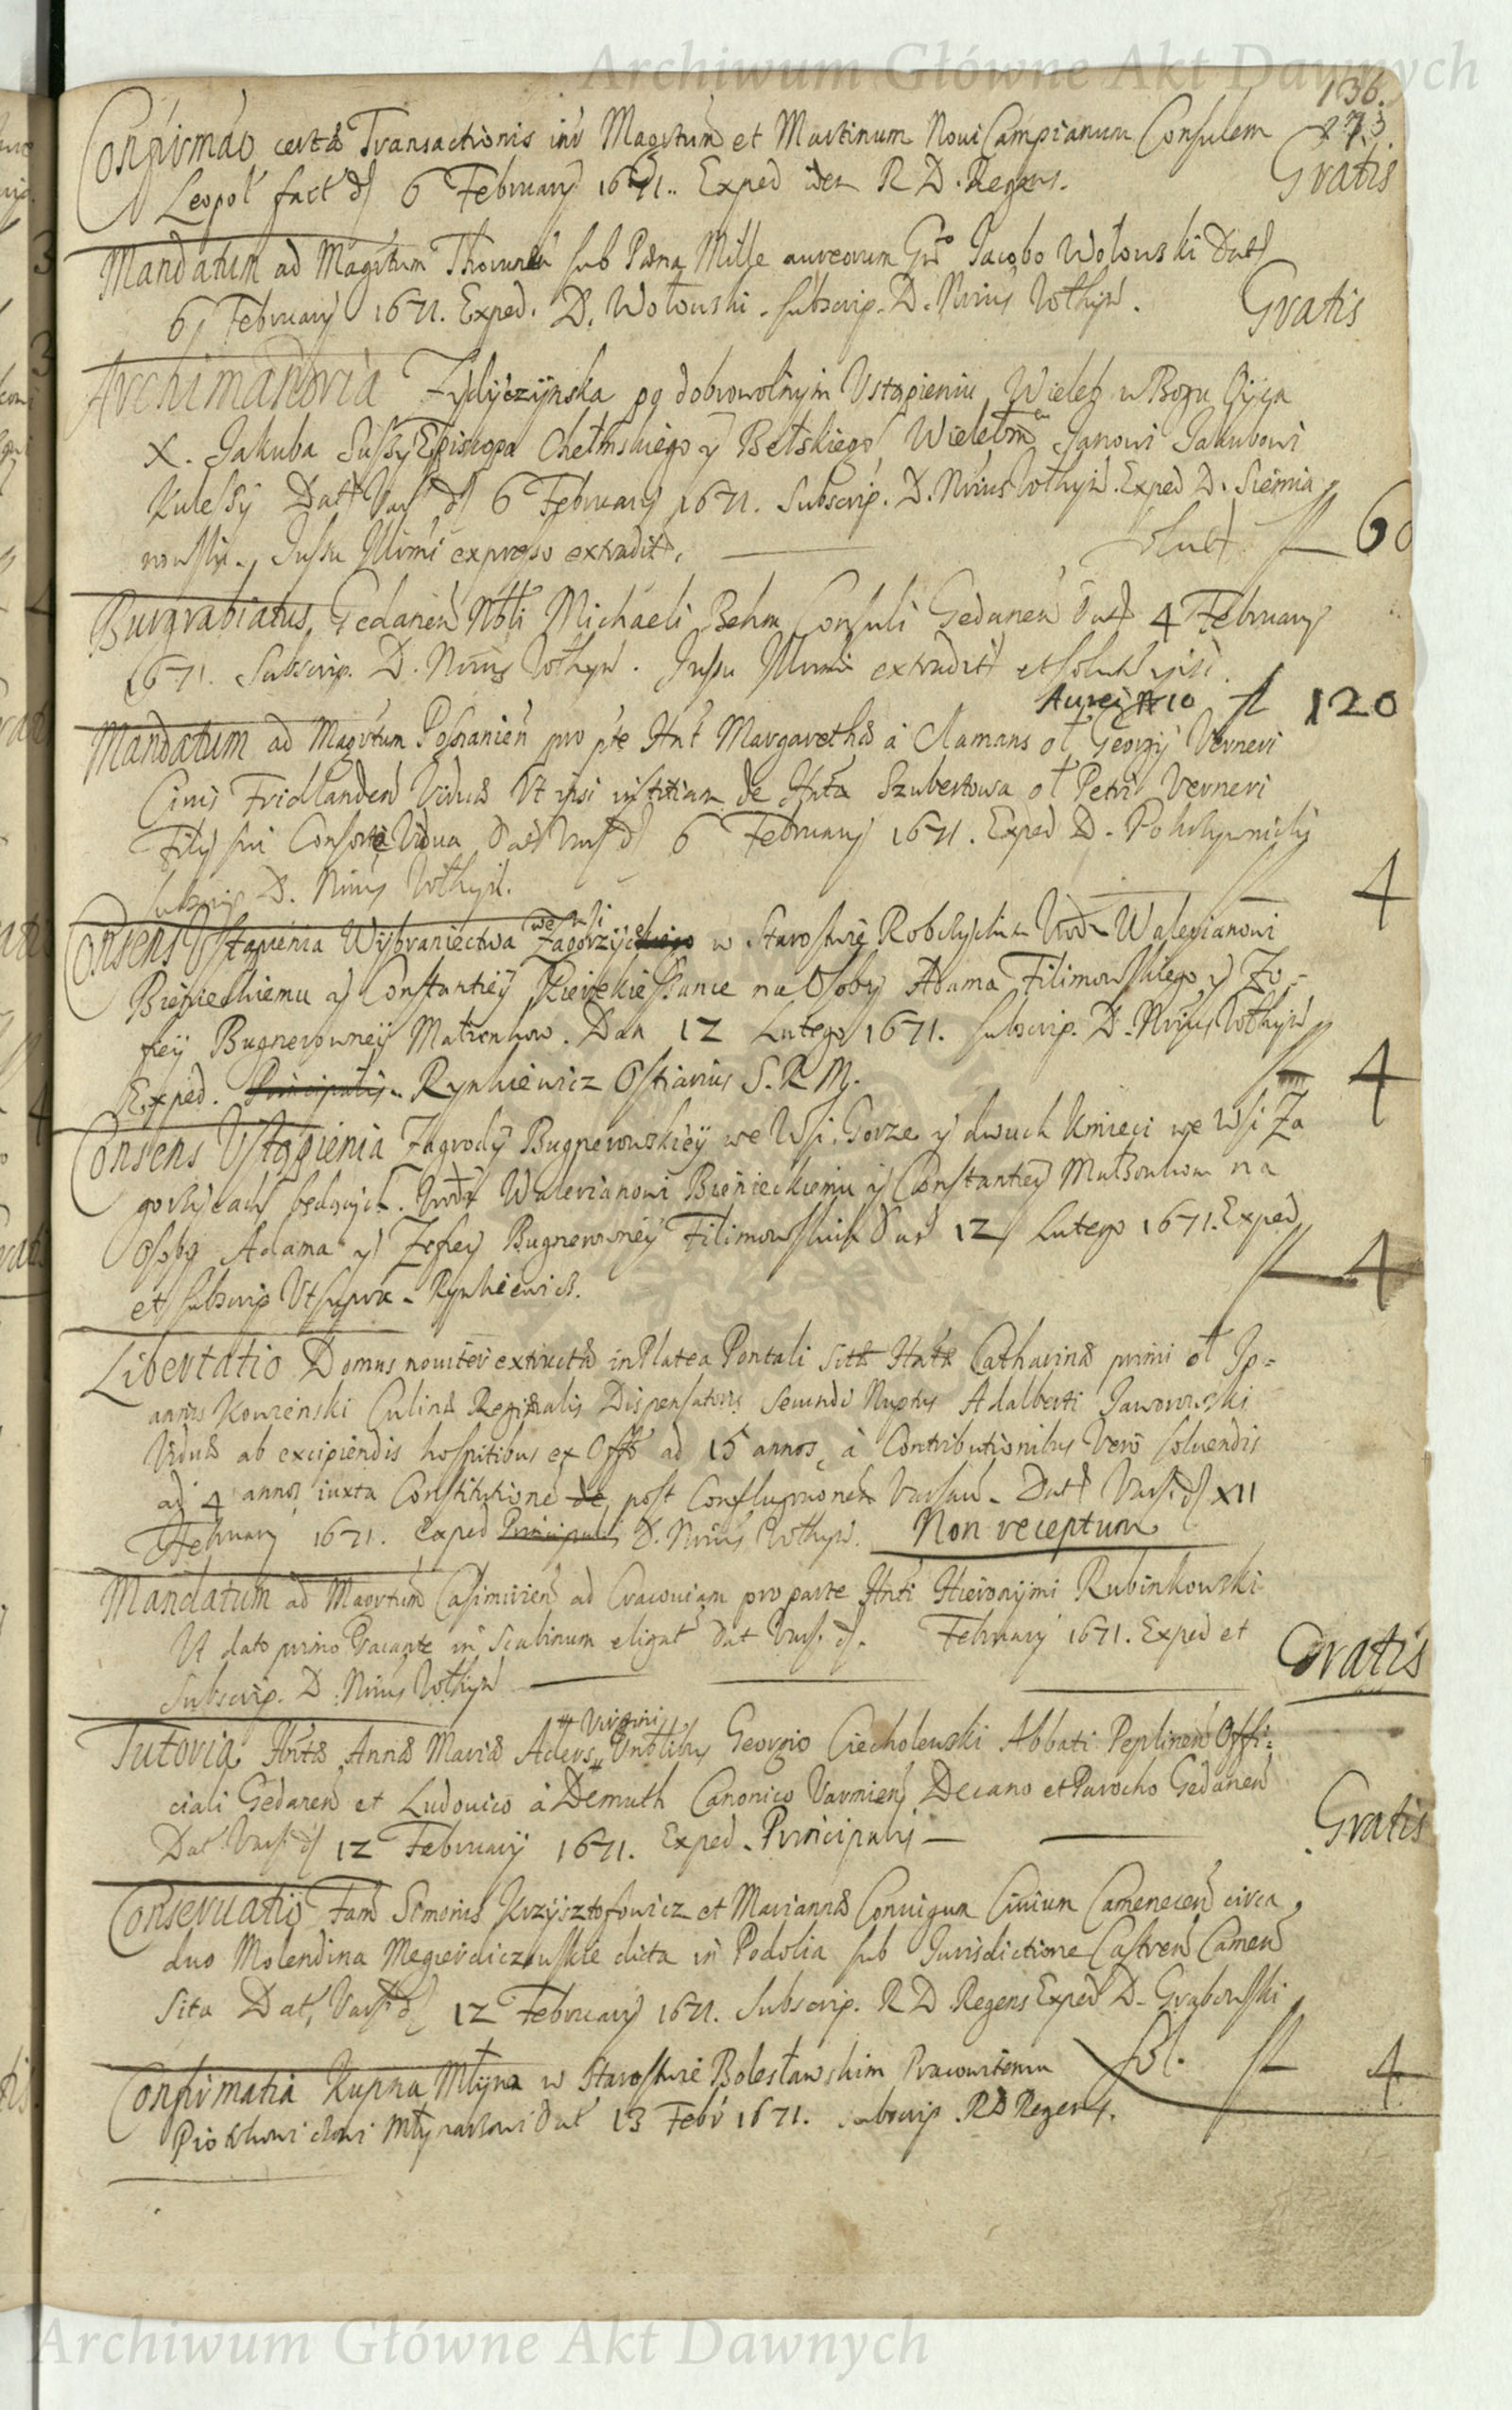 Archiwum Główne Akt Dawnych
136.
Confirmao certæ Transactionis int Magrtum et Martinum Noui Campianum Consulem
Leopol fact d 6 February 1671. Exped R D. Regens.
Gratis
Mandatum ad Magrtum Thorunen sub Pæna Mille aureorum Gso Jacobo Wołowski Dat
6 February 1671. Exped. D. Wołowski. subscrip. D. Nrius Wthyn.
Gratis
Archimandria Żydyczynska po dobrowolnym Vstąpieniu Wieleb w Bogu Oyca
X. Jakuba Suszy Episkopa Chełmskiego y Bełskiego Wielebm Janowi Jakubowi
Kulessy Dat Vars d 6 February 1671. Subscrip. D. Nrius Wthyn. Exped D. Siemia
nowski. Jussu Illrmi expresso extradit. Solut fl 60
Burgrabiatus Gedanen Nbli Michaeli Behm Consuli Gedanen Dat 4 February
1671. Subscrip. D. Nrius Wthyn. Jussu Illrmi extradit et solut ipsi.
Aurei # 10 fl 120
Mandatum ad Magrtum Posnanien pro pte Hnt Margarethæ à Clamans ol Georgy Verneri
Ciuis Fridlanden Viduæ Vt ipsi iustitiam de Hnta Szubertowa ol Petri Verneri
Filij sui Consorte Vidua Dat Vars d 6 February 1671. Exped D.
subscrip D. Nrius Wthyn. fl 4
Consens Vstąpienia Wybraniectwa we wsi Zagorzyc w Starostwie Robczyckim Vrod Waleryanowi
Bienieckiemu y Constantiey na Osoby Adama Filimowskiego y Zo-
fiey Bugnerowney Małzonkow. Dan 12 Lutego 1671. subscrip. D. Nrius Wthyn
Exped. Principalis. Rynkiewicz Ostiarius S. R. M. fl 4
Consens Vstąpienia Zagrody Bugnerowskiey we Wsi Gorze y dwuch Kmieci we Wsi Za
gorzycach będących. Vrod Waleryanowi Bienieckiemu y Constantiey Małzonkom na
Osoby Adama y Zofiey Bugnerowney Filimowskich Dat 12 Lutego 1671. Exped
et subscrip Vt supra. Rynkiewicz. fl 4
Libertatio Domus nouiter extructæ in Platea Pontali sitæ Hntæ Catharinæ primi ol Jo-
annis Kowienski Culinæ Reginalis Dispensatoris secundi Nuptys Adalberti Jaworowski
Viduæ ab excipiendis hospitibus ex Offo ad 15 annos, à Contributionibus Vero soluendis
ad 4 annos iuxta Constitutione de post Conflagraonem Varsauien. Dat Vars. d XII
February 1671. Exped Principalis D. Nrius Wthyn. Non receptum
Mandatum ad Magrtum Casimirien ad Cracouiam pro parte Hnti Hieronymi Rubinkowski
Vt dato primo Vacante in Scabinum eligat Dat Vars. d. February 1671. Exped et
Subscrip. D. Nrius Wthyn
Gratis
Tutoria Hntæ Annæ Mariæ Aclers Virgini Georgio Ciecholewski Abbati Peplinen Offi-
ciali Gedanen et Ludouico à Demuth Canonico Varmien, Decano et Parocho Gedanen
Dat Vars d 12 February 1671. Exped. Principalis
Gratis
Conseruatio Fam Simonis Krzysztofowicz et Mariannæ Coniugum Ciuium Camenecen circa
duo Molendina dicta in Podolia sub Jurisdictione Castren Camen
sita Dat, Vars d 12 February 1671. Subscrip. R D Regens Exped D. Grabowski
Sol. fl 4
Confirmatia Kupna Młyna w Starostwie Bolesławskim Pracowitemu
Młynarzowi Dat 13 Febr 1671. subscrip R D Regens.
Archiwum Główne Akt Dawnych